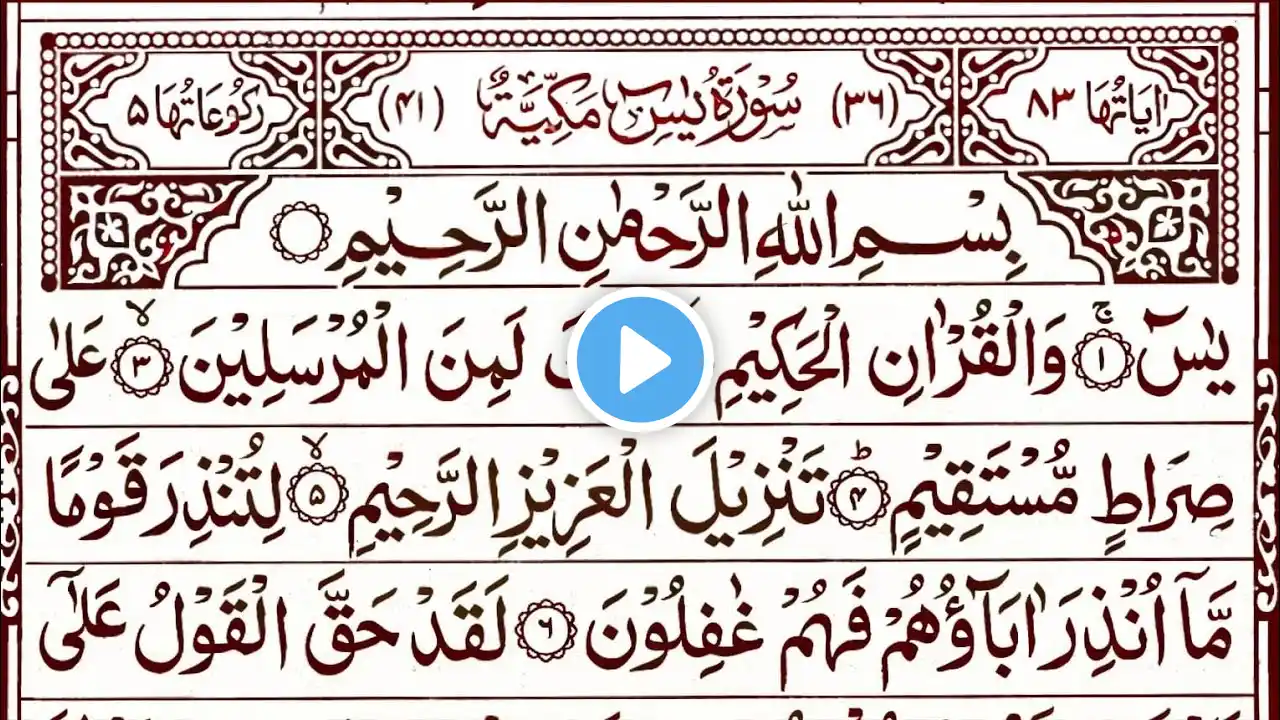 اٰيَاتُهَا ٨٣ (٣٦) سُوْرَةُ يٰسٓ مَكِّيَّةٌ (٤١) رُكُوْعَاتُهَا ٥
بِسْمِ اللّٰهِ الرَّحْمٰنِ الرَّحِيْمِ
يٰسٓ ۚ‏﴿۱﴾ وَالْقُرْاٰنِ الْحَكِيْمِ لَمِنَ الْمُرْسَلِيْنَ ۙ‏﴿۳﴾ عَلٰى
صِرَاطٍ مُّسْتَقِيْمٍ ؕ‏﴿۴﴾ تَنْزِيْلَ الْعَزِيْزِ الرَّحِيْمِ ۙ‏﴿۵﴾ لِتُنْذِرَ قَوْمًا
مَّاۤ اُنْذِرَ اٰبَآؤُهُمْ فَهُمْ غٰفِلُوْنَ ‏﴿۶﴾ لَقَدْ حَقَّ الْقَوْلُ عَلٰٓى